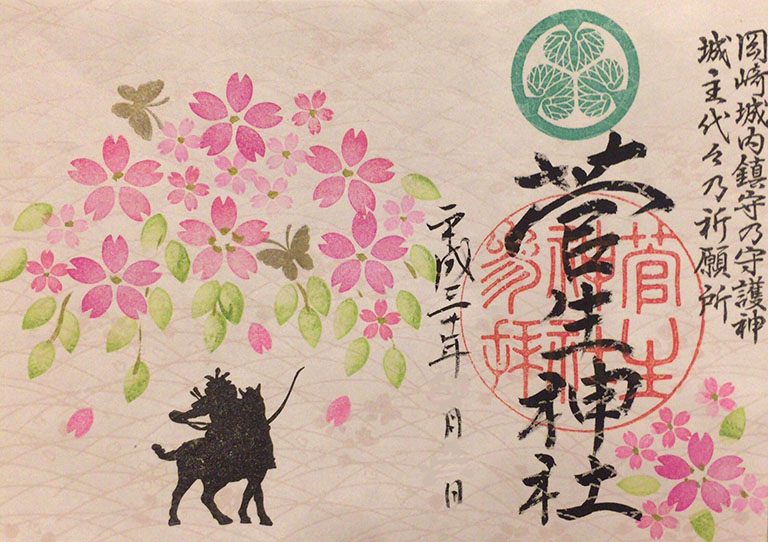 岡崎城内鎮守乃守護神
城主代々乃祈願所
菅生神社
菅生
神社
参拝
平成三十年 月 日